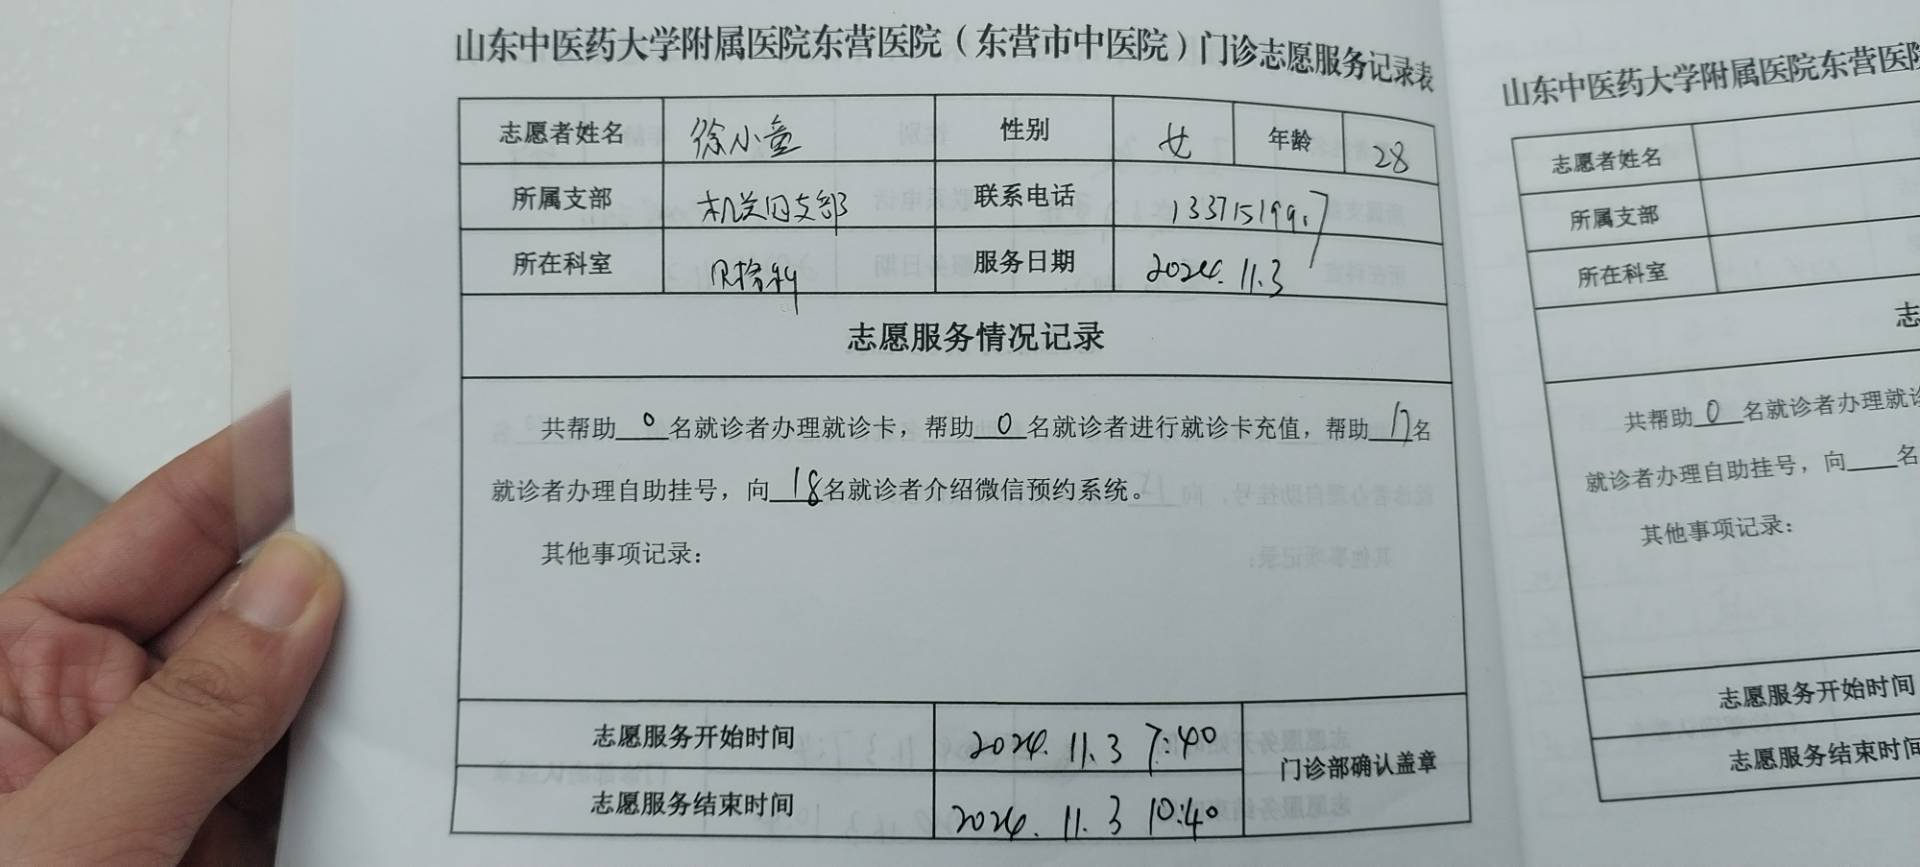 山东中医药大学附属医院东营医院（东营市中医院）门诊志愿服务记录表
志愿者姓名 徐小童 性别 女 年龄 28
所属支部 机关四支部 联系电话
所在科室 服务日期 2024.11.3
志愿服务情况记录
共帮助0名就诊者办理就诊卡，帮助0名就诊者进行就诊卡充值，帮助17名
就诊者办理自助挂号，向18名就诊者介绍微信预约系统。
其他事项记录：
志愿服务开始时间 2024.11.3 7:40
门诊部确认盖章
志愿服务结束时间 2024.11.3 10:40
山东中医药大学附属医院东营医院
志愿者姓名
所属支部
所在科室
志
共帮助0名就诊者办理就诊
就诊者办理自助挂号，向____名
其他事项记录：
志愿服务开始时间
志愿服务结束时间